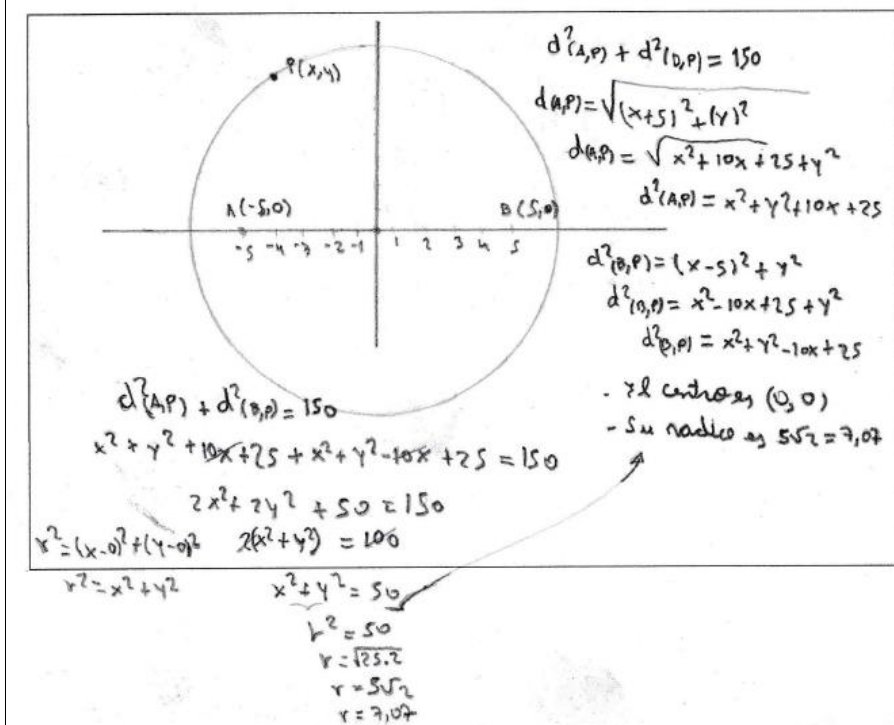 P(x,y)
A(-5,0)
B(5,0)
-5 -4 -3 -2 -1 1 2 3 4 5
d²(A,P) + d²(B,P) = 150
d(A,P) = √(x+5)² + (y)²
d(A,P) = √x² + 10x + 25 + y²
d²(A,P) = x² + y² + 10x + 25
d²(B,P) = (x-5)² + y²
d²(B,P) = x² - 10x + 25 + y²
d²(B,P) = x² + y² - 10x + 25
- El centro es (0,0)
- Su radio es 5√2 = 7,07
d²(A,P) + d²(B,P) = 150
x² + y² + 10x + 25 + x² + y² - 10x + 25 = 150
2x² + 2y² + 50 = 150
r² = (x-0)² + (y-0)² 2(x² + y²) = 100
r² = x² + y² x² + y² = 50
r² = 50
r = √25.2
r = 5√2
r = 7,07